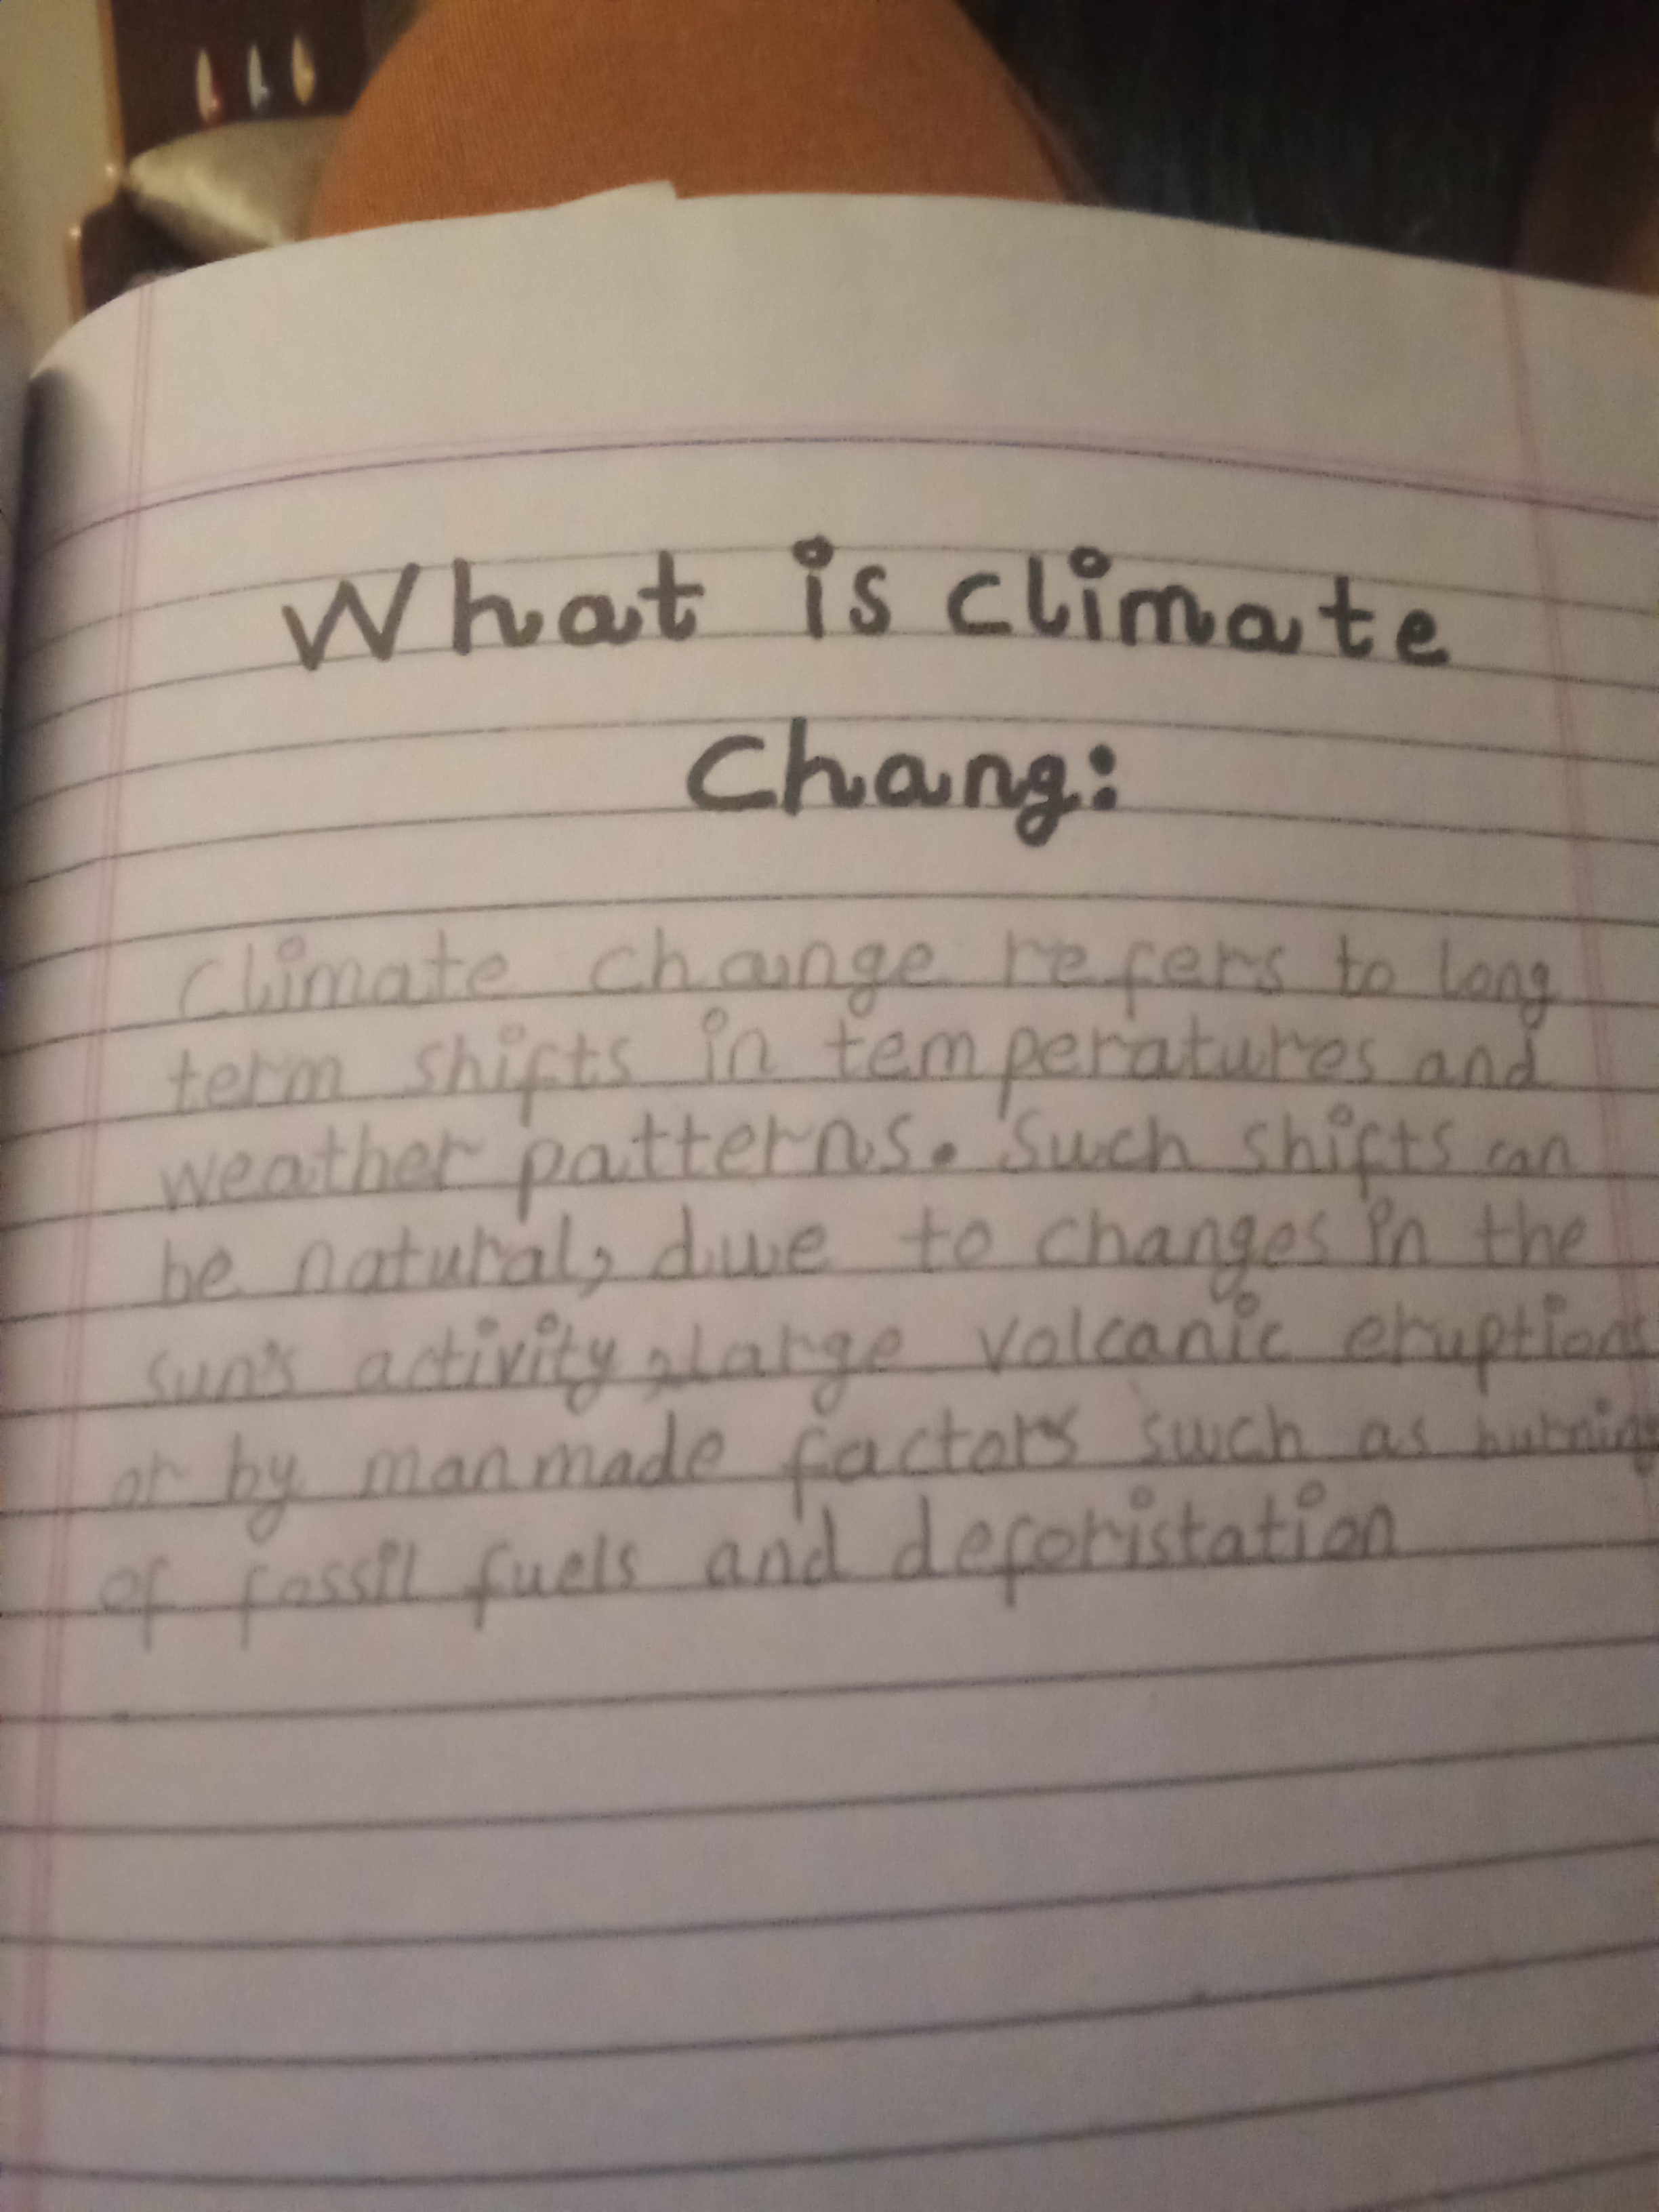 What is climate
Chang:
Climate change refers to long
term shifts in temperatures and
weather patterns. Such shifts can
be natural, due to changes in the
sun's activity, large volcanic eruptions
or by manmade factors such as burning
of fossil fuels and deforistation